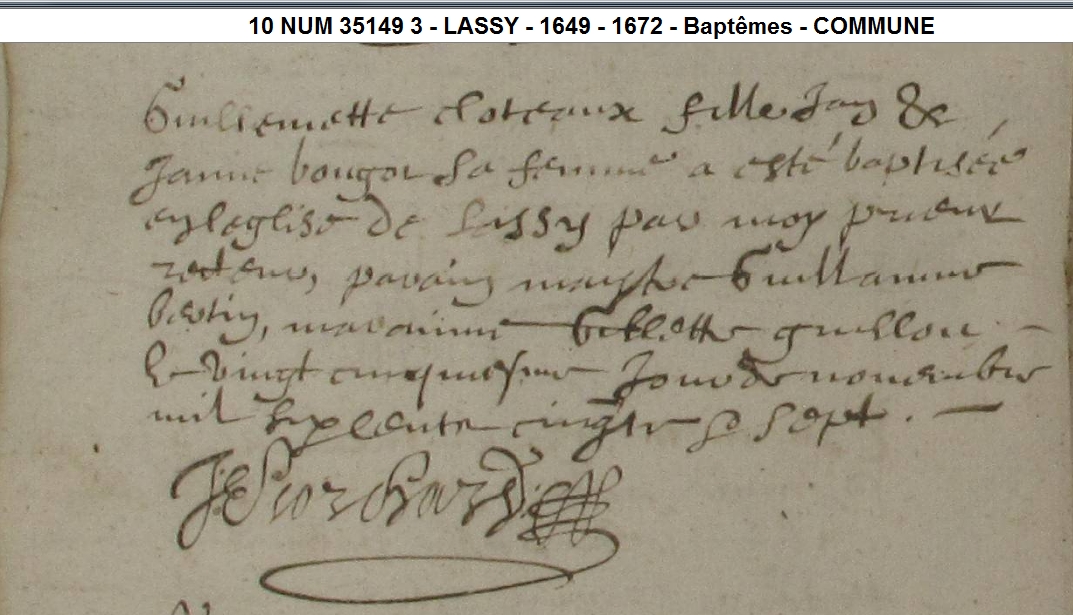 10 NUM 35149 3 - LASSY - 1649 - 1672 - Baptêmes - COMMUNE
Guillemette cloteaux fille Jan &
Janne bougor sa femme a esté baptisée
en leglise de Lassy par moy prieur
recteur, parain maistre Guillaume
bertin, maraine Gillette guillou
le vingt cinquiesme Jour de novembre
mil six cents cinqte & sept.